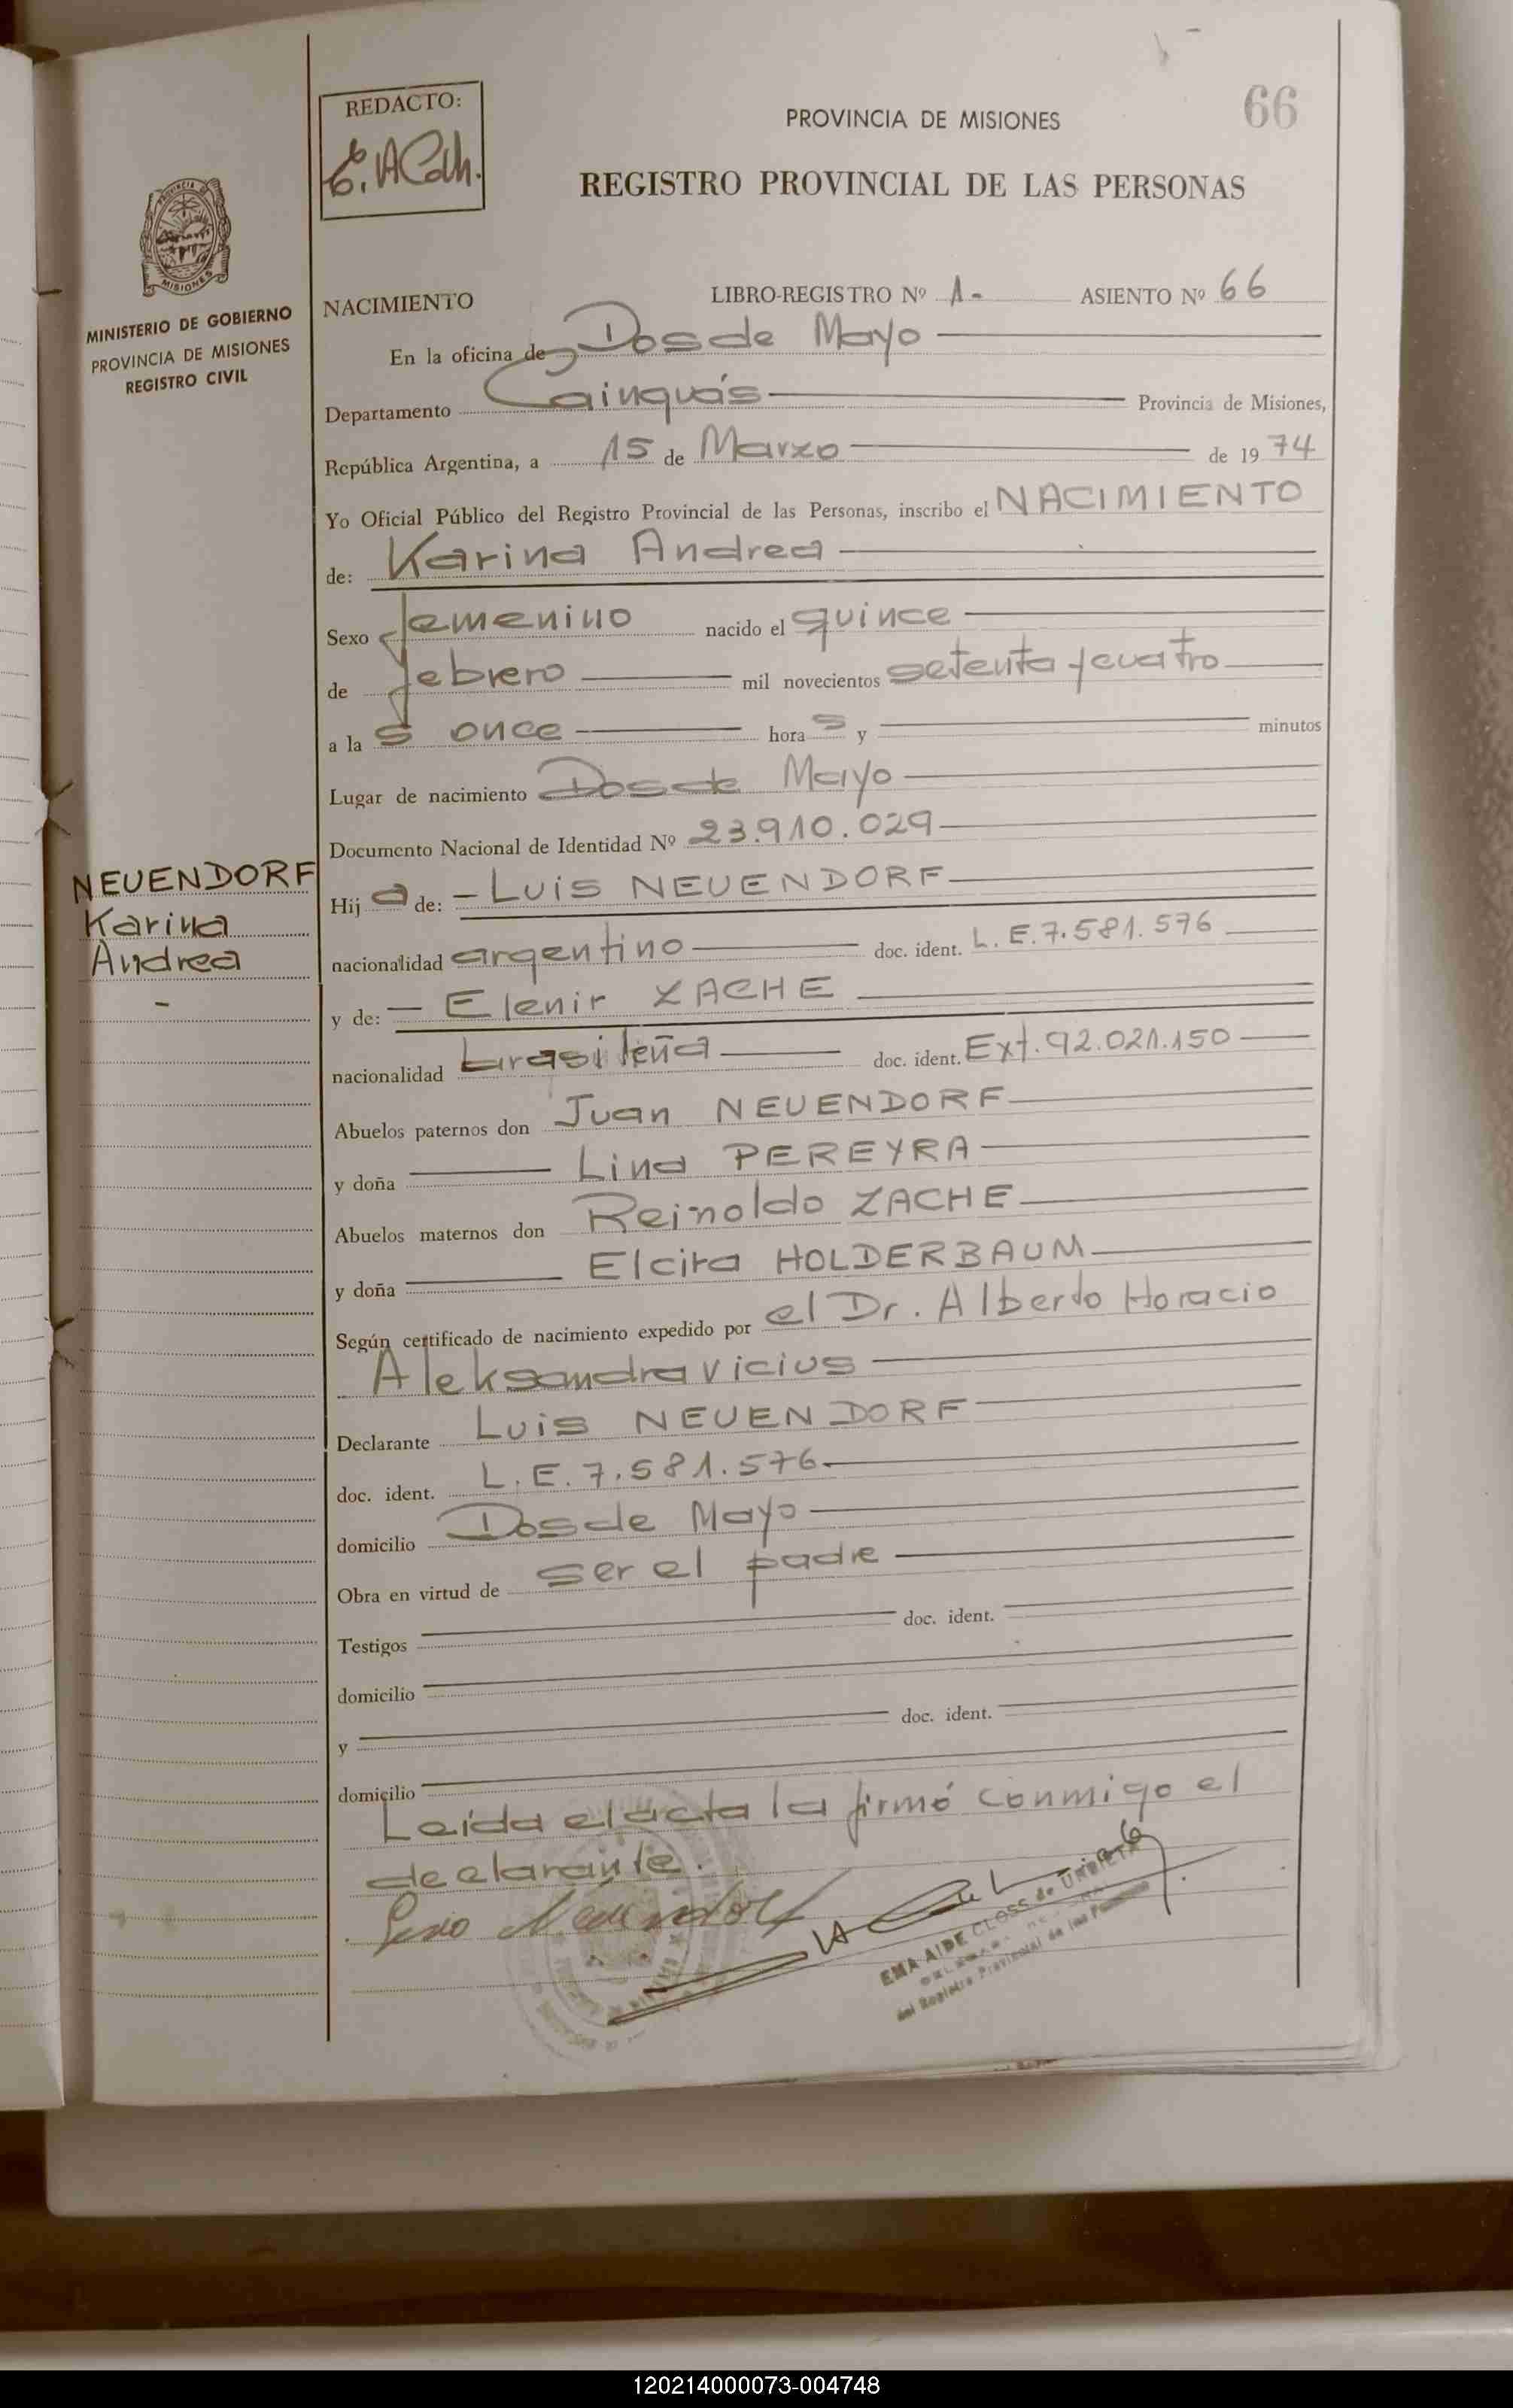 66
REDACTO:
PROVINCIA DE MISIONES
REGISTRO PROVINCIAL DE LAS PERSONAS
MISIONES
MINISTERIO DE GOBIERNO
PROVINCIA DE MISIONES
REGISTRO CIVIL
NACIMIENTO LIBRO-REGISTRO Nº 1- ASIENTO Nº 66
En la oficina de Dos de Mayo
Departamento Cainguás Provincia de Misiones,
República Argentina, a 15 de Marzo de 1974
Yo Oficial Público del Registro Provincial de las Personas, inscribo el NACIMIENTO
de: Karina Andrea
Sexo femenino nacido el quince
de febrero mil novecientos setenta y cuatro
a las once horas y minutos
Lugar de nacimiento Dos de Mayo
Documento Nacional de Identidad Nº 23.910.029
NEUENDORF
Karina
Andrea
-
Hija de: - Luis NEUENDORF
nacionalidad argentino doc. ident. L.E.7.581.576
y de: - Elenir ZACHE
nacionalidad brasileña doc. ident. Ext. 92.021.150
Abuelos paternos don Juan NEUENDORF
y doña Lina PEREYRA
Abuelos maternos don Reinoldo ZACHE
y doña Elcira HOLDERBAUM
Según certificado de nacimiento expedido por el Dr. Alberto Horacio
Aleksandravicius
Declarante Luis NEUENDORF
doc. ident. L.E.7.581.576
domicilio Dos de Mayo
Obra en virtud de ser el padre
Testigos doc. ident.
domicilio
y doc. ident.
domicilio
Leída el acta la firmó conmigo el
declarante.
EMA AIDE CLOSS de URRIETA
del Registro Provincial de las Personas
120214000073-004748